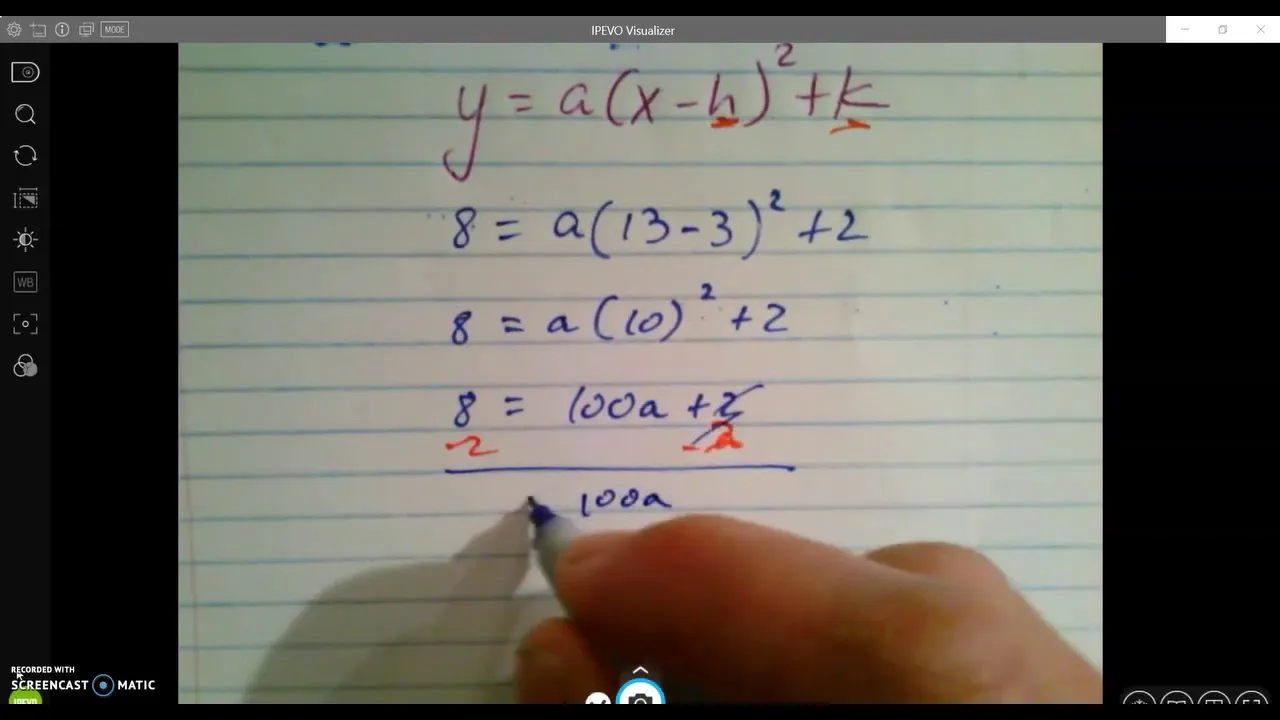 MODE
IPEVO Visualizer
y = a(x-h)² + k
8 = a(13-3)² + 2
8 = a(10)² + 2
8 = 100a + 2
-2 -2
100a
WB
RECORDED WITH
SCREENCAST MATIC